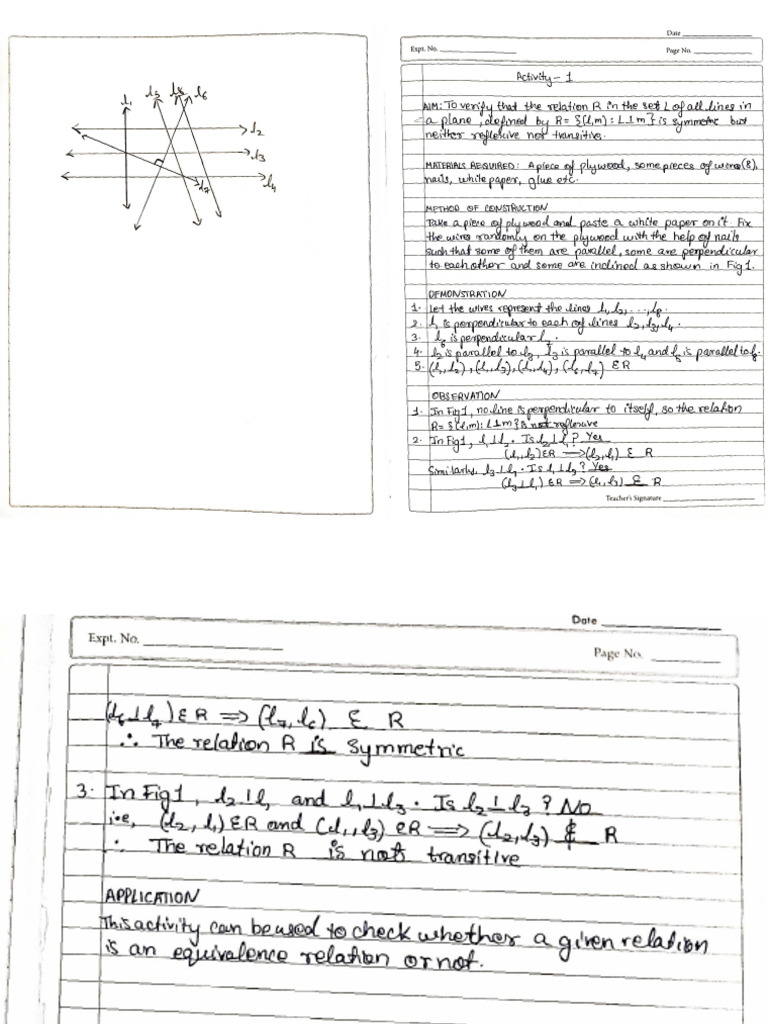 l₁ l₅ l₈ l₆
l₂
l₃
l₇ l₄
Date
Expt. No. Page No.
Activity - 1
AIM: To verify that the relation R in the set L of all lines in
a plane, defined by R = {(l,m) : l⊥m} is symmetric but
neither reflexive nor transitive.
MATERIALS REQUIRED: A piece of plywood, some pieces of wires(8),
nails, white paper, glue etc.
METHOD OF CONSTRUCTION
Take a piece of plywood and paste a white paper on it. Fix
the wires randomly on the plywood with the help of nails
such that some of them are parallel, some are perpendicular
to each other and some are inclined as shown in Fig 1.
DEMONSTRATION
1. Let the wires represent the lines l₁, l₂, ..., l₈.
2. l₁ is perpendicular to each of lines l₂, l₃, l₄.
3. l₆ is perpendicular l₇.
4. l₂ is parallel to l₃, l₃ is parallel to l₄ and l₅ is parallel to l₈.
5. (l₁,l₂), (l₁,l₃), (l₁,l₄), (l₆,l₇) ∈R
OBSERVATION
1. In Fig 1, no line is perpendicular to itself, so the relation
R = {(l,m) : l⊥m} is not reflexive
2. In Fig 1, l₁⊥l₂. Is l₂⊥l₁? Yes
(l₁,l₂)∈R ⟹ (l₂,l₁) ∈ R
Similarly, l₃⊥l₁. Is l₁⊥l₃? Yes
(l₃⊥l₁) ∈R ⟹ (l₁,l₃) ∈ R
Teacher's Signature
Date
Expt. No. Page No.
(l₆⊥l₇) ∈ R ⟹ (l₇, l₆) ∈ R
∴ The relation R is symmetric
3. In Fig 1, l₂⊥l₁ and l₁⊥l₃. Is l₂⊥l₃? No
i.e, (l₂, l₁) ∈R and (l₁, l₃) ∈R ⟹ (l₂, l₃) ∉ R
∴ The relation R is not transitive
APPLICATION
This activity can be used to check whether a given relation
is an equivalence relation or not.